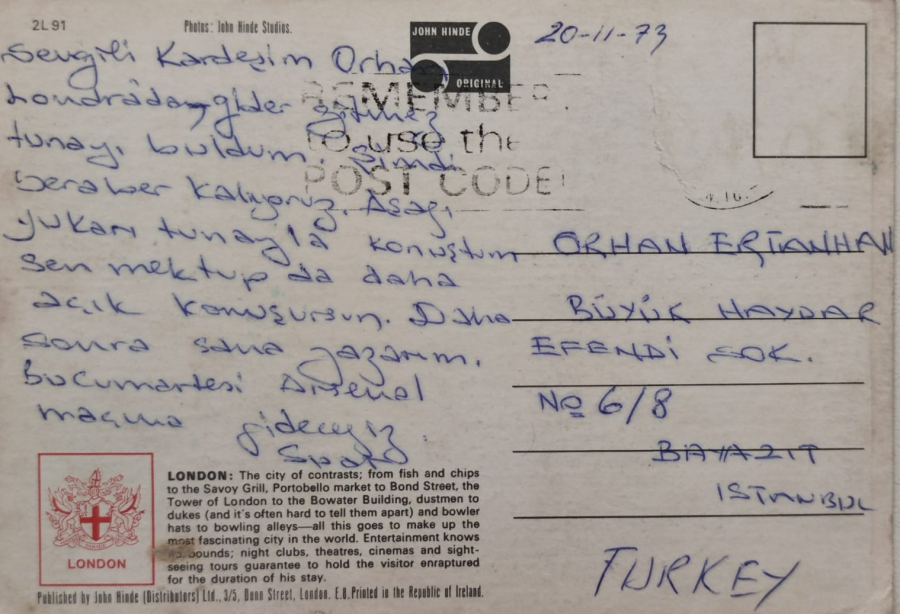 2L91
Photos: John Hinde Studios.
JOHN HINDE
ORIGINAL
20-11-73
REMEMBER
to use the
POST CODE
Sevgili Kardeşim Orhan
Londradaygider gitmez
tunayı buldum. Şimdi
beraber kalıyoruz. Aşağı
yukarı tunayla konuştum
sen mektup da daha
açık konuşursun. Daha
sonra sana yazarım.
bu cumartesi Arsenal
maçına gideceğiz
ORHAN ERTANHAN
BÜYÜK HAYDAR
EFENDİ SOK.
No 6/8
BAYAZIT
ISTANBUL
TURKEY
LONDON
LONDON: The city of contrasts; from fish and chips
to the Savoy Grill, Portobello market to Bond Street, the
Tower of London to the Bowater Building, dustmen to
dukes (and it's often hard to tell them apart) and bowler
hats to bowling alleys—all this goes to make up the
most fascinating city in the world. Entertainment knows
no bounds; night clubs, theatres, cinemas and sight-
seeing tours guarantee to hold the visitor enraptured
for the duration of his stay.
Published by John Hinde (Distributors) Ltd., 3/5, Bonn Street, London. E.8. Printed in the Republic of Ireland.